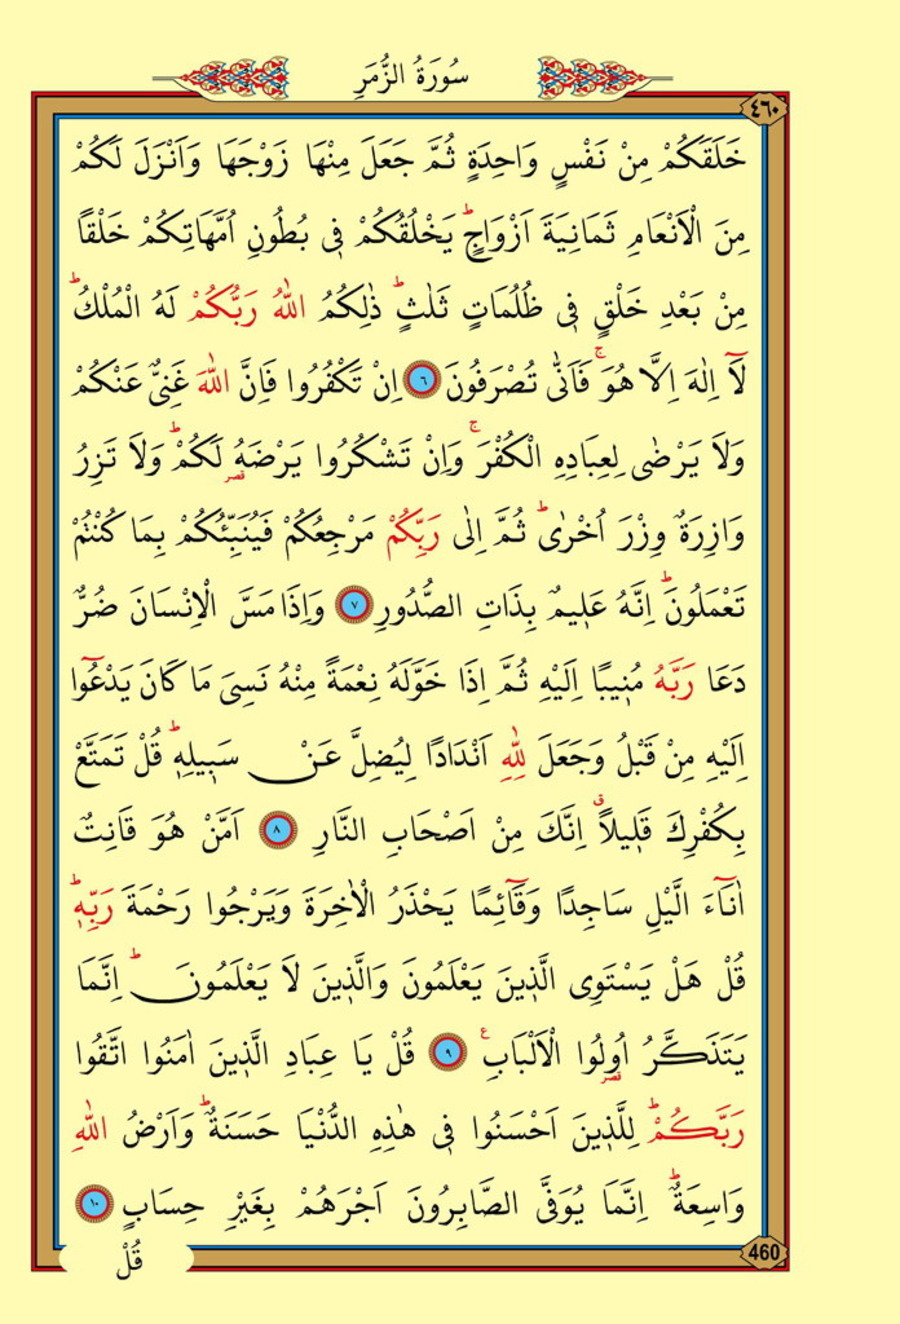 سُورَةُ الزُّمَرِ
٤٦٠
خَلَقَكُمْ مِنْ نَفْسٍ وَاحِدَةٍ ثُمَّ جَعَلَ مِنْهَا زَوْجَهَا وَاَنْزَلَ لَكُمْ
مِنَ الْاَنْعَامِ ثَمَانِيَةَ اَزْوَاجٍۜ يَخْلُقُكُمْ ف۪ي بُطُونِ اُمَّهَاتِكُمْ خَلْقًا
مِنْ بَعْدِ خَلْقٍ ف۪ي ظُلُمَاتٍ ثَلٰثٍۜ ذٰلِكُمُ اللّٰهُ رَبُّكُمْ لَهُ الْمُلْكُۜ
لَٓا اِلٰهَ اِلَّا هُوَۚ فَاَنّٰى تُصْرَفُونَ ٦ اِنْ تَكْفُرُوا فَاِنَّ اللّٰهَ غَنِيٌّ عَنْكُمْ
وَلَا يَرْضٰى لِعِبَادِهِ الْكُفْرَۚ وَاِنْ تَشْكُرُوا يَرْضَهُ لَكُمْۜ وَلَا تَزِرُ
قصر
وَازِرَةٌ وِزْرَ اُخْرٰىۜ ثُمَّ اِلٰى رَبِّكُمْ مَرْجِعُكُمْ فَيُنَبِّئُكُمْ بِمَا كُنْتُمْ
تَعْمَلُونَۜ اِنَّهُ عَل۪يمٌ بِذَاتِ الصُّدُورِ ٧ وَاِذَا مَسَّ الْاِنْسَانَ ضُرٌّ
دَعَا رَبَّهُ مُن۪يبًا اِلَيْهِ ثُمَّ اِذَا خَوَّلَهُ نِعْمَةً مِنْهُ نَسِيَ مَا كَانَ يَدْعُٓوا
اِلَيْهِ مِنْ قَبْلُ وَجَعَلَ لِلّٰهِ اَنْدَادًا لِيُضِلَّ عَنْ سَب۪يلِه۪ۜ قُلْ تَمَتَّعْ
بِكُفْرِكَ قَل۪يلًاۗ اِنَّكَ مِنْ اَصْحَابِ النَّارِ ٨ اَمَّنْ هُوَ قَانِتٌ
اٰنَٓاءَ الَّيْلِ سَاجِدًا وَقَٓائِمًا يَحْذَرُ الْاٰخِرَةَ وَيَرْجُوا رَحْمَةَ رَبِّه۪ۜ
قُلْ هَلْ يَسْتَوِي الَّذ۪ينَ يَعْلَمُونَ وَالَّذ۪ينَ لَا يَعْلَمُونَۜ اِنَّمَا
يَتَذَكَّرُ اُولُوا الْاَلْبَابِ ع ٩ قُلْ يَا عِبَادِ الَّذ۪ينَ اٰمَنُوا اتَّقُوا
قصر
رَبَّكُمْۜ لِلَّذ۪ينَ اَحْسَنُوا ف۪ي هٰذِهِ الدُّنْيَا حَسَنَةٌۜ وَاَرْضُ اللّٰهِ
وَاسِعَةٌۜ اِنَّمَا يُوَفَّى الصَّابِرُونَ اَجْرَهُمْ بِغَيْرِ حِسَابٍ ١٠
460
قُلْ